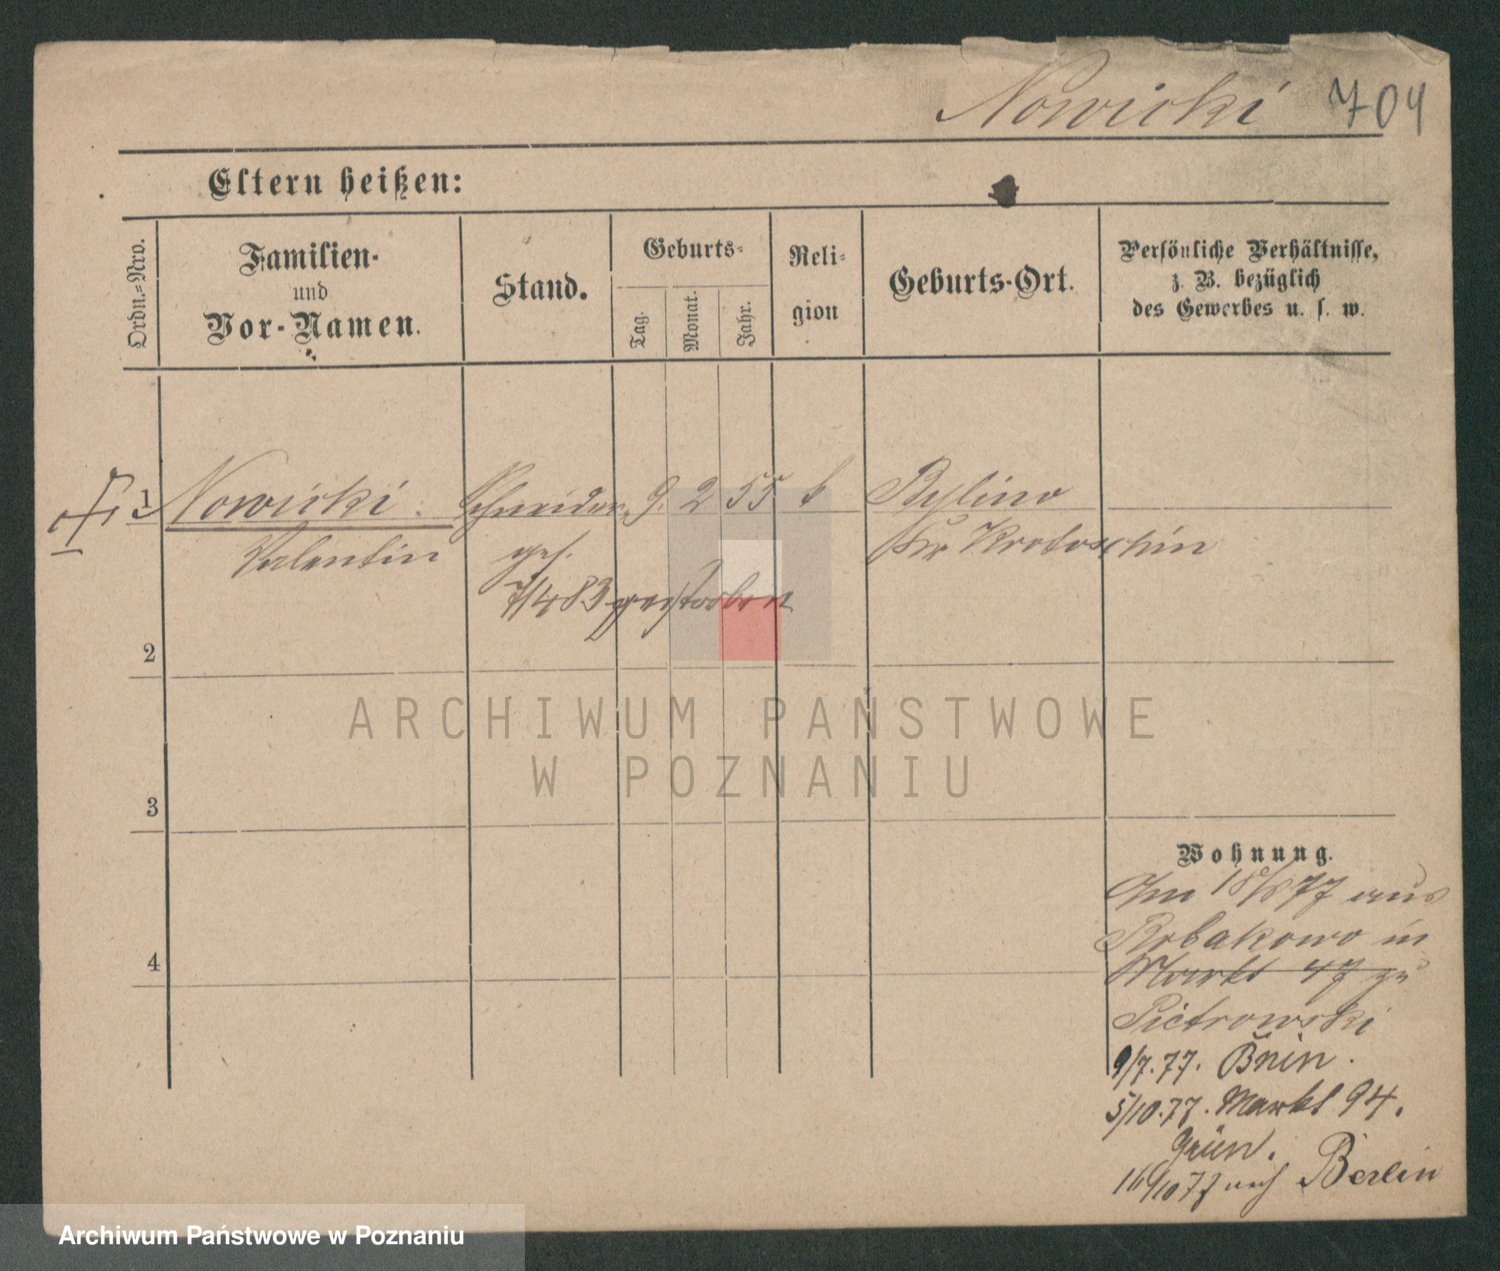 Nowicki 704
Eltern heißen:
Ordn.-Nro.
Familien-
und
Vor-Namen.
Stand.
Geburts-
Tag.
Monat.
Jahr.
Reli-
gion
Geburts-Ort.
Persönliche Verhältnisse,
z. B. bezüglich
des Gewerbes u. s. w.
1 Nowicki. Schneider 9. 2 55 k Bylino
Valentin ges. Kr Krotoschin
7/4 83 gestorben
2
ARCHIWUM PAŃSTWOWE
W POZNANIU
3
4
Wohnung.
Am 18/ 77 aus
in
Markt 47 zu
Pietrowski
9/7. 77. Bnin.
5/10. 77. Markt 94.
Grün.
16/10 77 nach Berlin
Archiwum Państwowe w Poznaniu